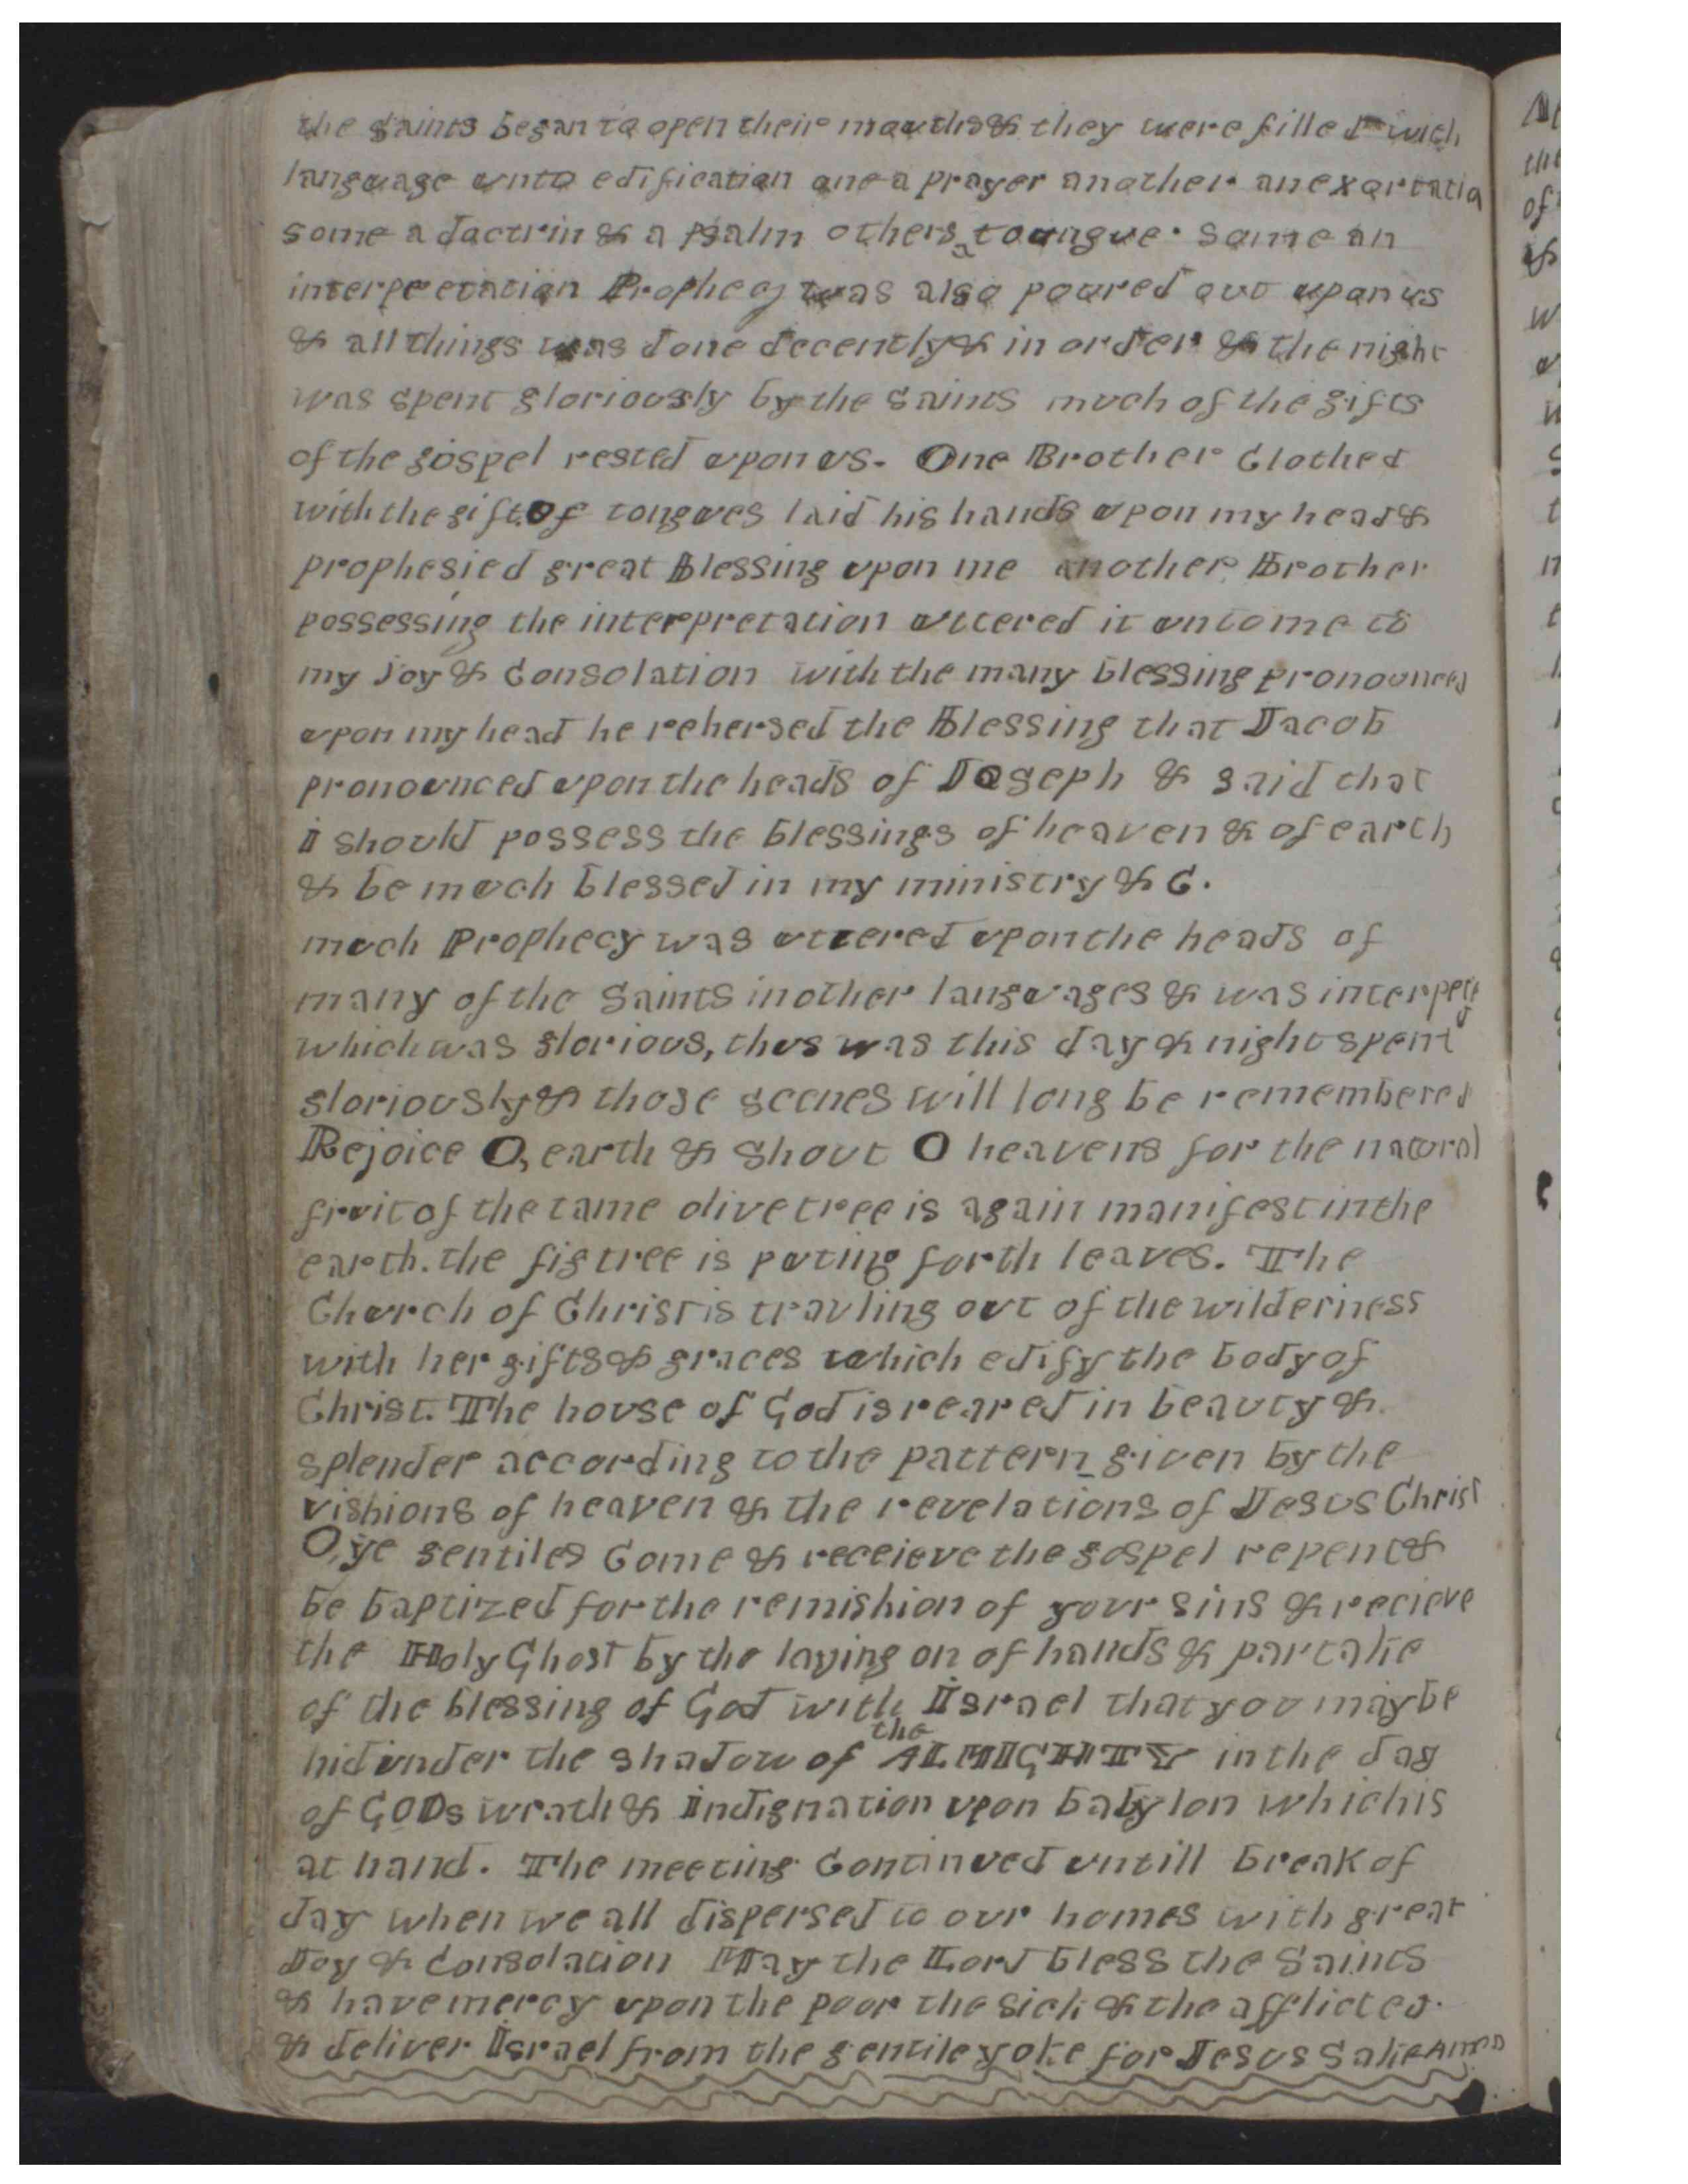 the Saints began to open their mouths & they were filled with
language unto edification one a prayer another an exortatio
some a doctrin & a psalm others a toungue. some an
interpeetation Prophecy was also poured out upon us
& all things was done decently & in order & the night
was spent gloriously by the Saints much of the gifts
of the gospel rested upon us. One Brother Clothed
with the gift of tongues laid his hands upon my head &
prophesied great Blessing upon me another Brother
possessing the interpretation uttered it unto me to
my Joy & Consolation with the many blessing pronounced
upon my head he rehersed the Blessing that Jacob
pronounced upon the heads of Joseph & said that
I should possess the blessings of heaven & of earth
& be much blessed in my ministry & C.
much Prophecy was uttered upon the heads of
many of the Saints in other languages & was
which was glorious, thus was this day & night spent
gloriously & those scenes will long be remembered
Rejoice O, earth & Shout O heavens for the natural
fruit of the tame olive tree is again manifest in the
earth. the fig tree is puting forth leaves. The
Church of Christ is travling out of the wilderness
with her gifts & graces which edify the body of
Christ. The house of God is reared in beauty &
splender according to the pattern given by the
vishions of heaven & the revelations of Jesus Christ
O, ye gentiles Come & receieve the gospel repent &
be baptized for the remishion of your sins & recieve
the Holy Ghost by the laying on of hands & partake
of the blessing of God with Israel that you may be
hid under the shadow of the ALMIGHTY in the day
of GODs wrath & indignation upon babylon which is
at hand. The meeting Continued untill break of
day when we all dispersed to our homes with great
Joy & Consolation May the Lord bless the Saints
& have mercy upon the poor the sick & the afflicted.
& deliver Israel from the gentile yoke for Jesus Sake AMEN